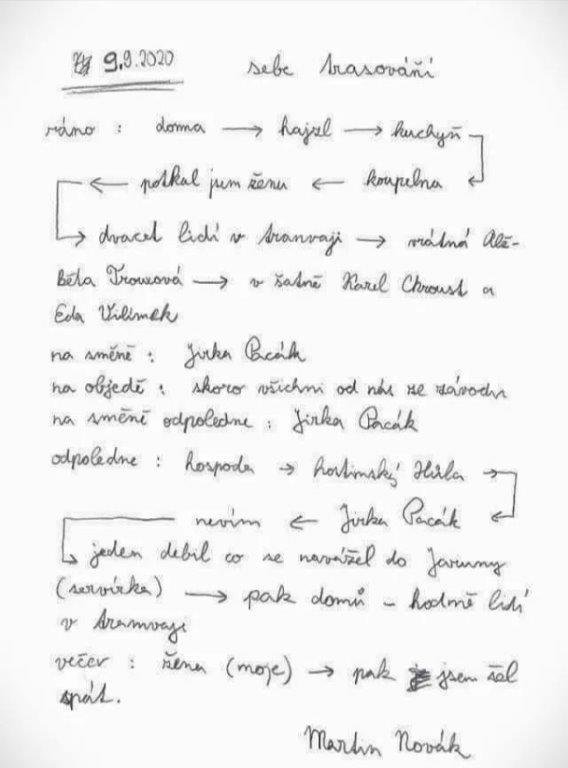 9.9.2020 sebe trasování
ráno : doma → hajzl → kuchyň
← potkal jsem ženu ← koupelna
→ dvacet lidí v tramvaji → vrátná Alž-
běta Trousová → v šatně Karel Chroust a
Eda Vilímek
na směně : Jirka Pacák
na objedě : skoro všichni od nás ze závodu
na směně odpoledne : Jirka Pacák
odpoledne : hospoda → hostinský Hála →
nevím ← Jirka Pacák ←
→ jeden debil co se navážel do Jaruny
(servírka) → pak domů – hodně lidí
v tramvaji
večer : žena (moje) → pak jsem šel
spát.
Martin Novák